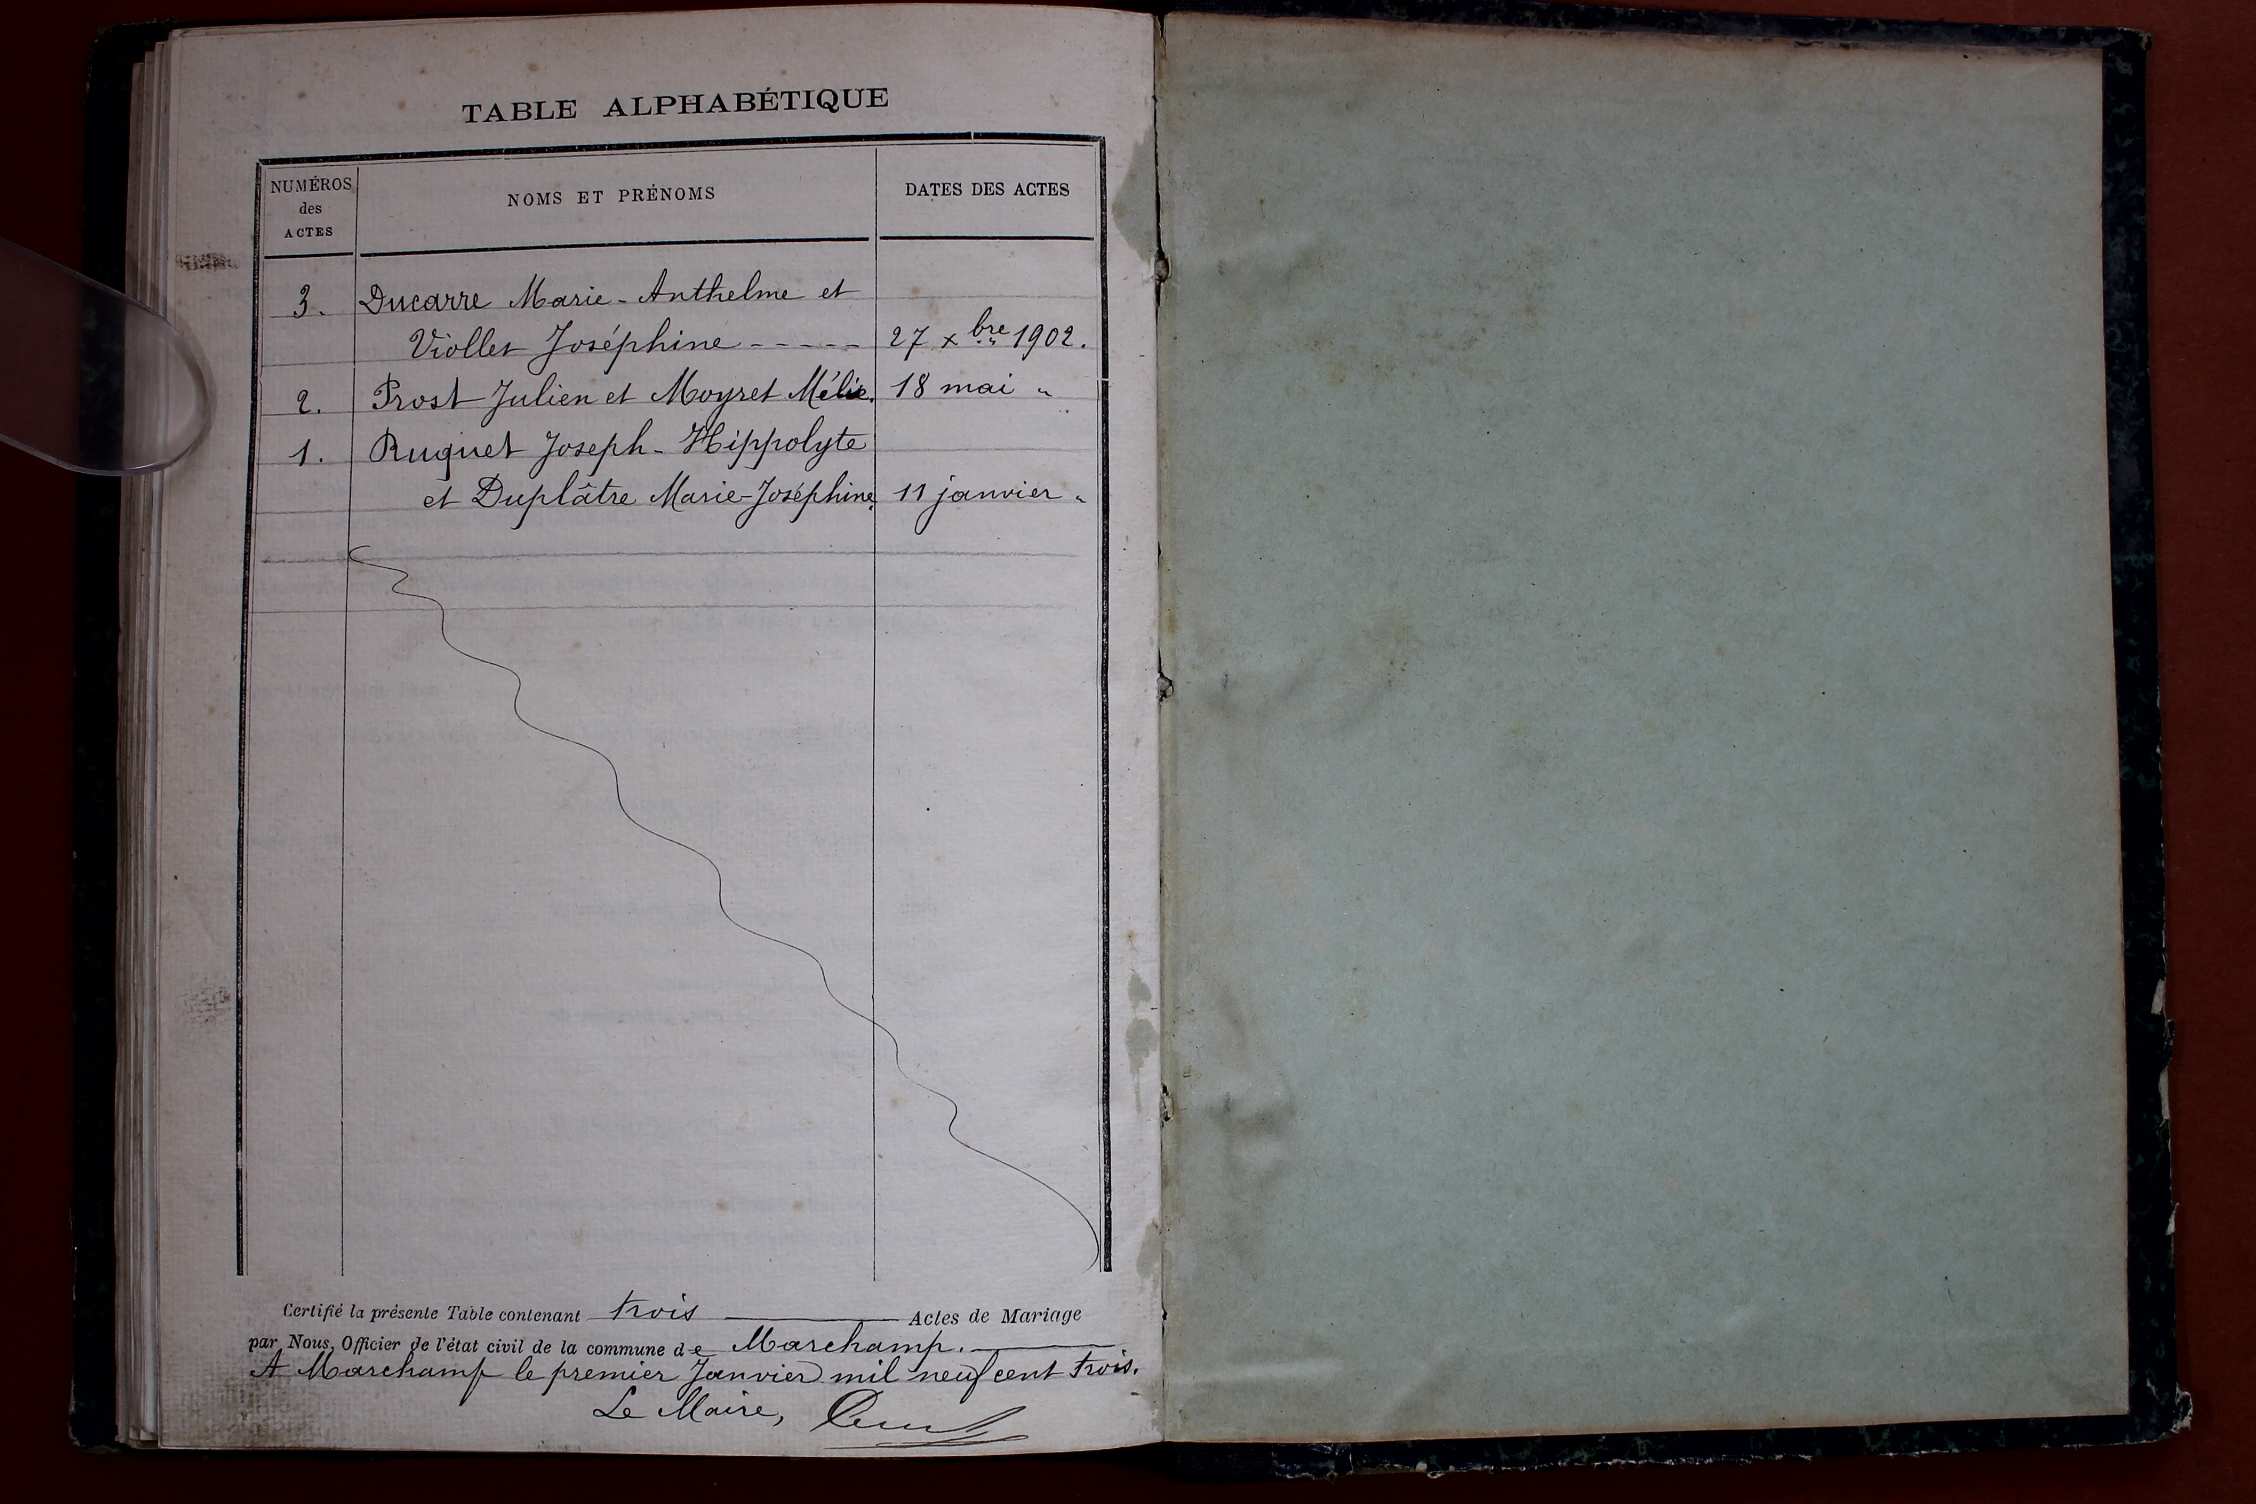 TABLE ALPHABÉTIQUE
NUMÉROS des ACTES
NOMS ET PRÉNOMS
DATES DES ACTES
3. Ducarre Marie-Anthelme et
Viollet Joséphine ----- 27 xbre 1902.
2. Prost Julien et Moyret Mélie. 18 mai "
1. Ruguet Joseph-Hippolyte
et Duplâtre Marie-Joséphine. 11 janvier "
Certifié la présente Table contenant trois Actes de Mariage
par Nous, Officier de l'état civil de la commune de Marchamp.
A Marchamp le premier Janvier mil neuf cent trois.
Le Maire,